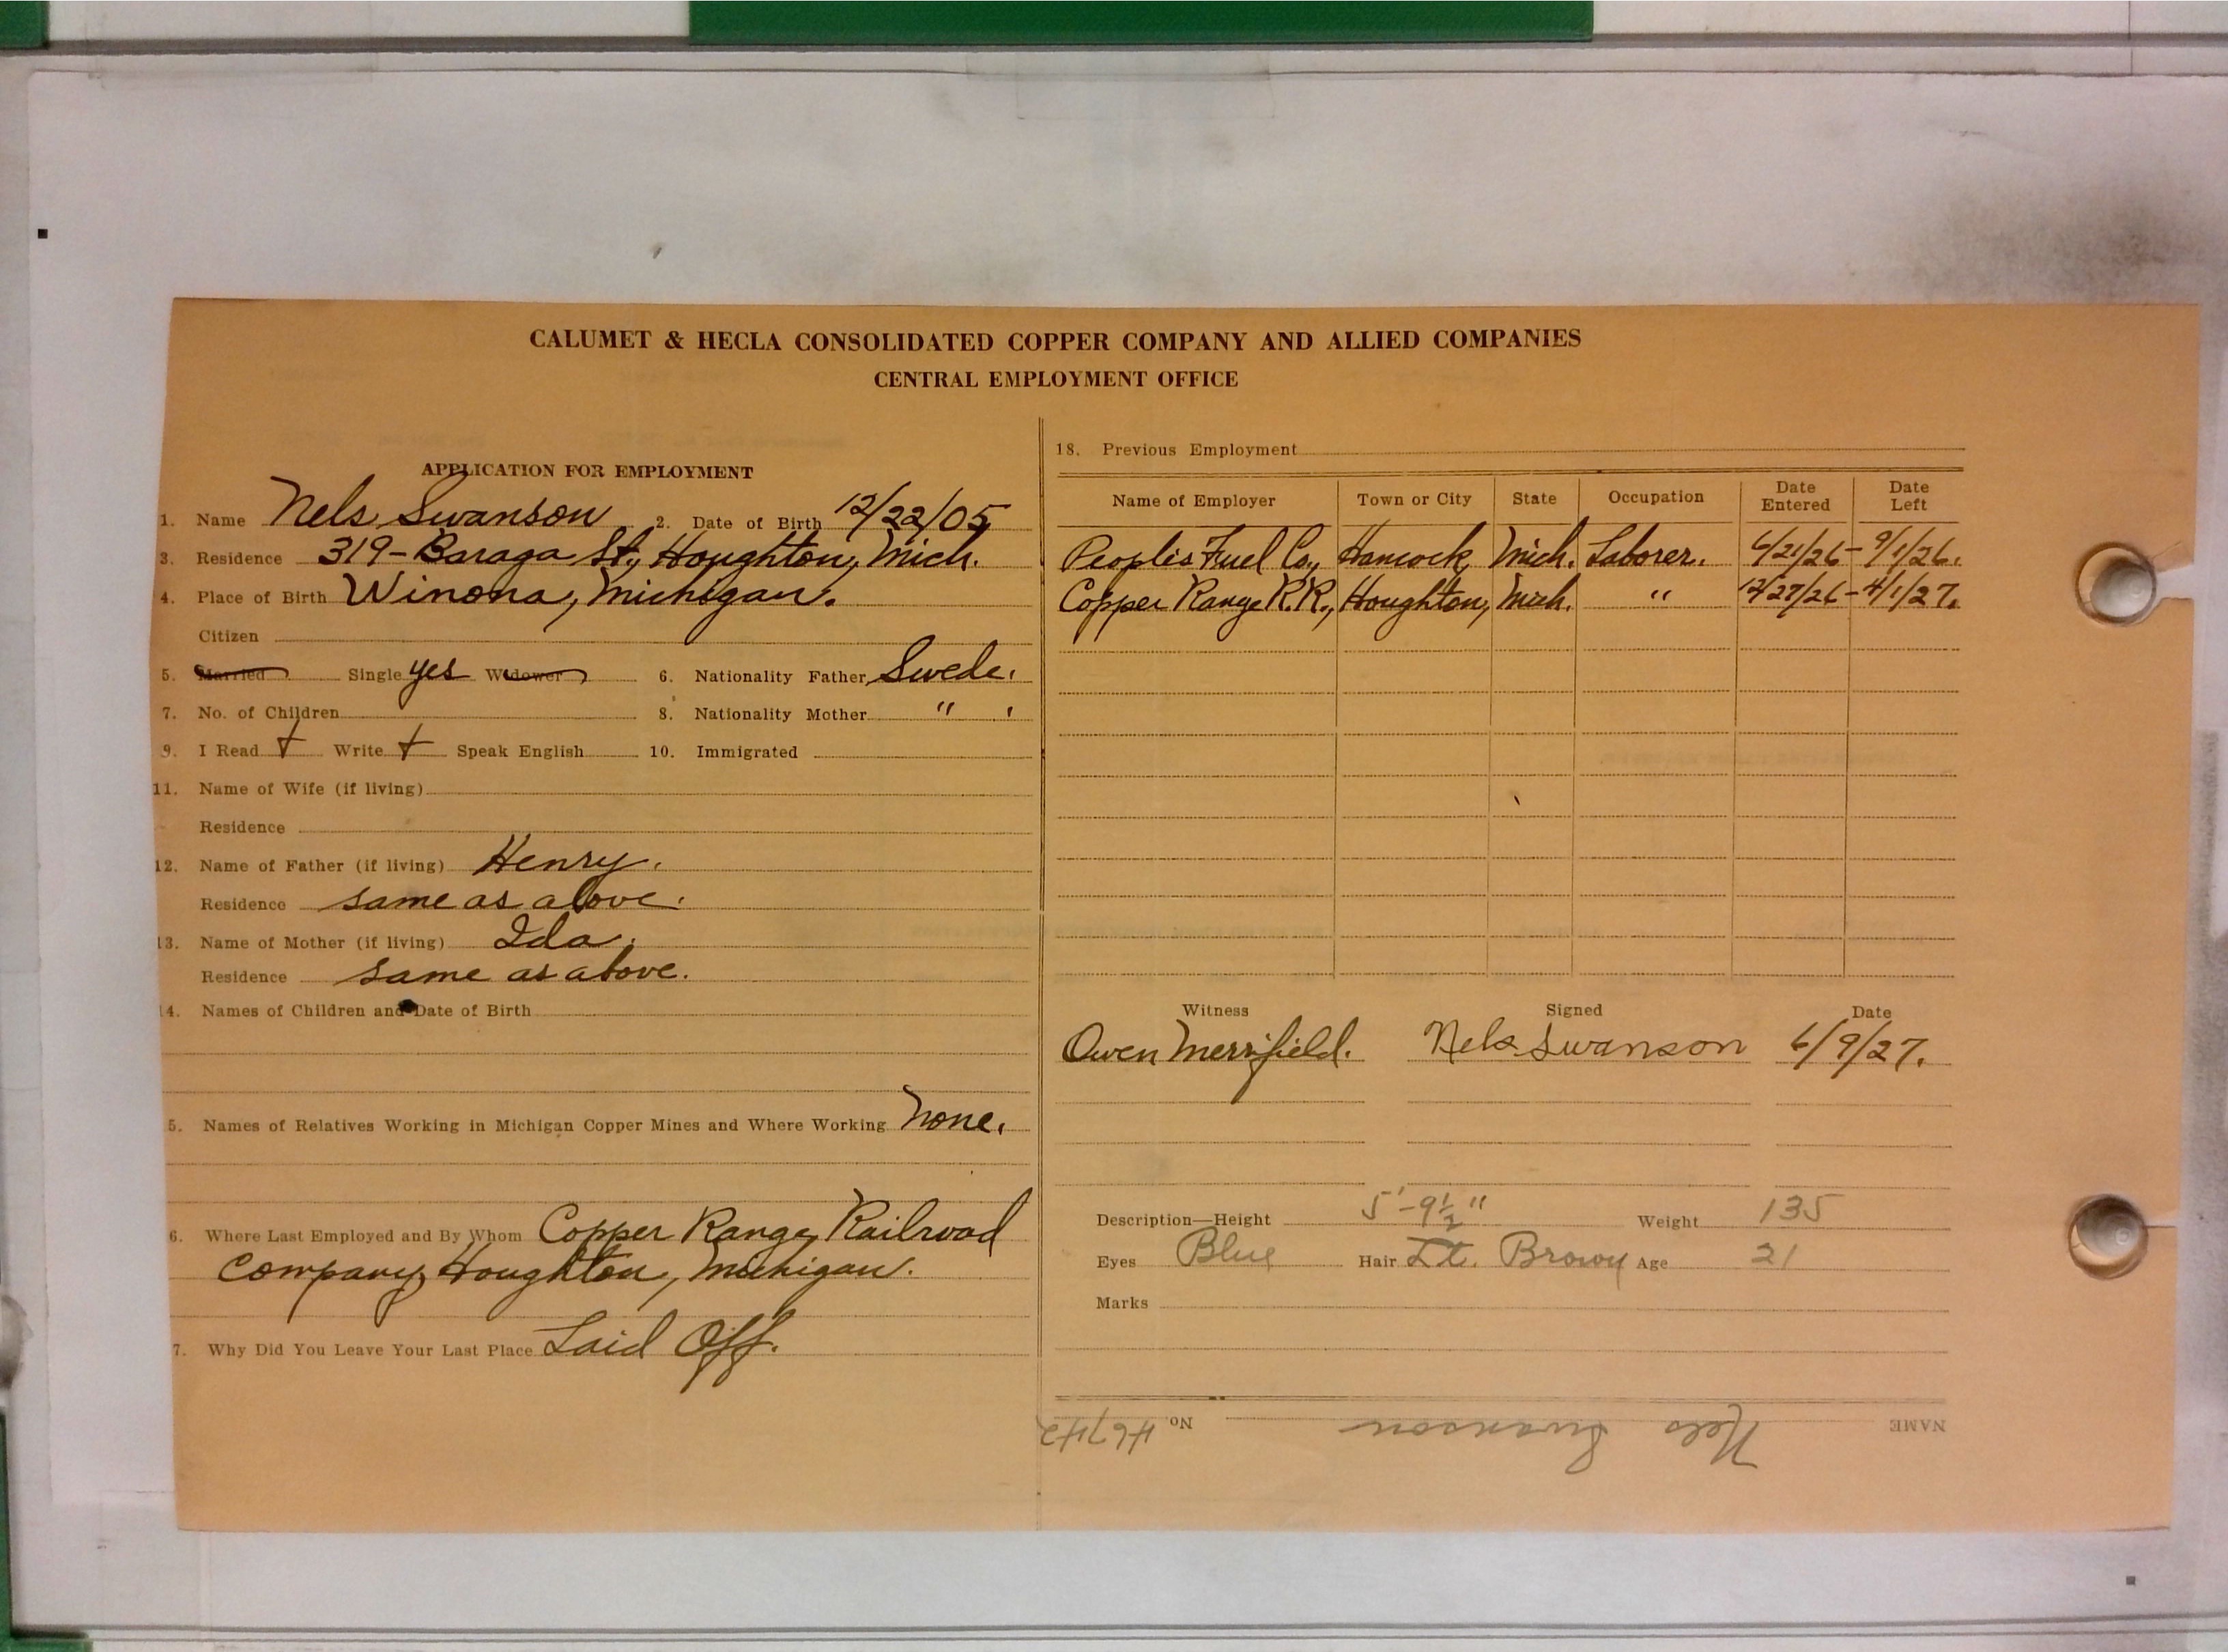 CALUMET & HECLA CONSOLIDATED COPPER COMPANY AND ALLIED COMPANIES
CENTRAL EMPLOYMENT OFFICE
APPLICATION FOR EMPLOYMENT
1. Name Nels Swanson 2. Date of Birth 12/22/05
3. Residence 319-Baraga St., Houghton, Mich.
4. Place of Birth Winona, Michigan.
Citizen
5. Married Single yes Widower 6. Nationality Father Swede.
7. No. of Children 8. Nationality Mother " .
9. I Read † Write † Speak English 10. Immigrated
11. Name of Wife (if living)
Residence
12. Name of Father (if living) Henry.
Residence same as above.
13. Name of Mother (if living) Ida.
Residence same as above.
14. Names of Children and Date of Birth
5. Names of Relatives Working in Michigan Copper Mines and Where Working None.
6. Where Last Employed and By Whom Copper Range Railroad
Company, Houghton, Michigan.
7. Why Did You Leave Your Last Place Laid Off.
18. Previous Employment
Name of Employer Town or City State Occupation Date Entered Date Left
Peoples Fuel Co., Hancock, Mich. Laborer. 6/21/26 - 9/1/26.
Copper Range R.R., Houghton, Mich. " 12/27/26 - 4/1/27.
Witness Signed Date
Owen Merrifield. Nels Swanson 6/9/27.
Description—Height 5'-9½" Weight 135
Eyes Blue Hair Lt. Brown Age 21
Marks
NAME Nels Swanson No. 46742